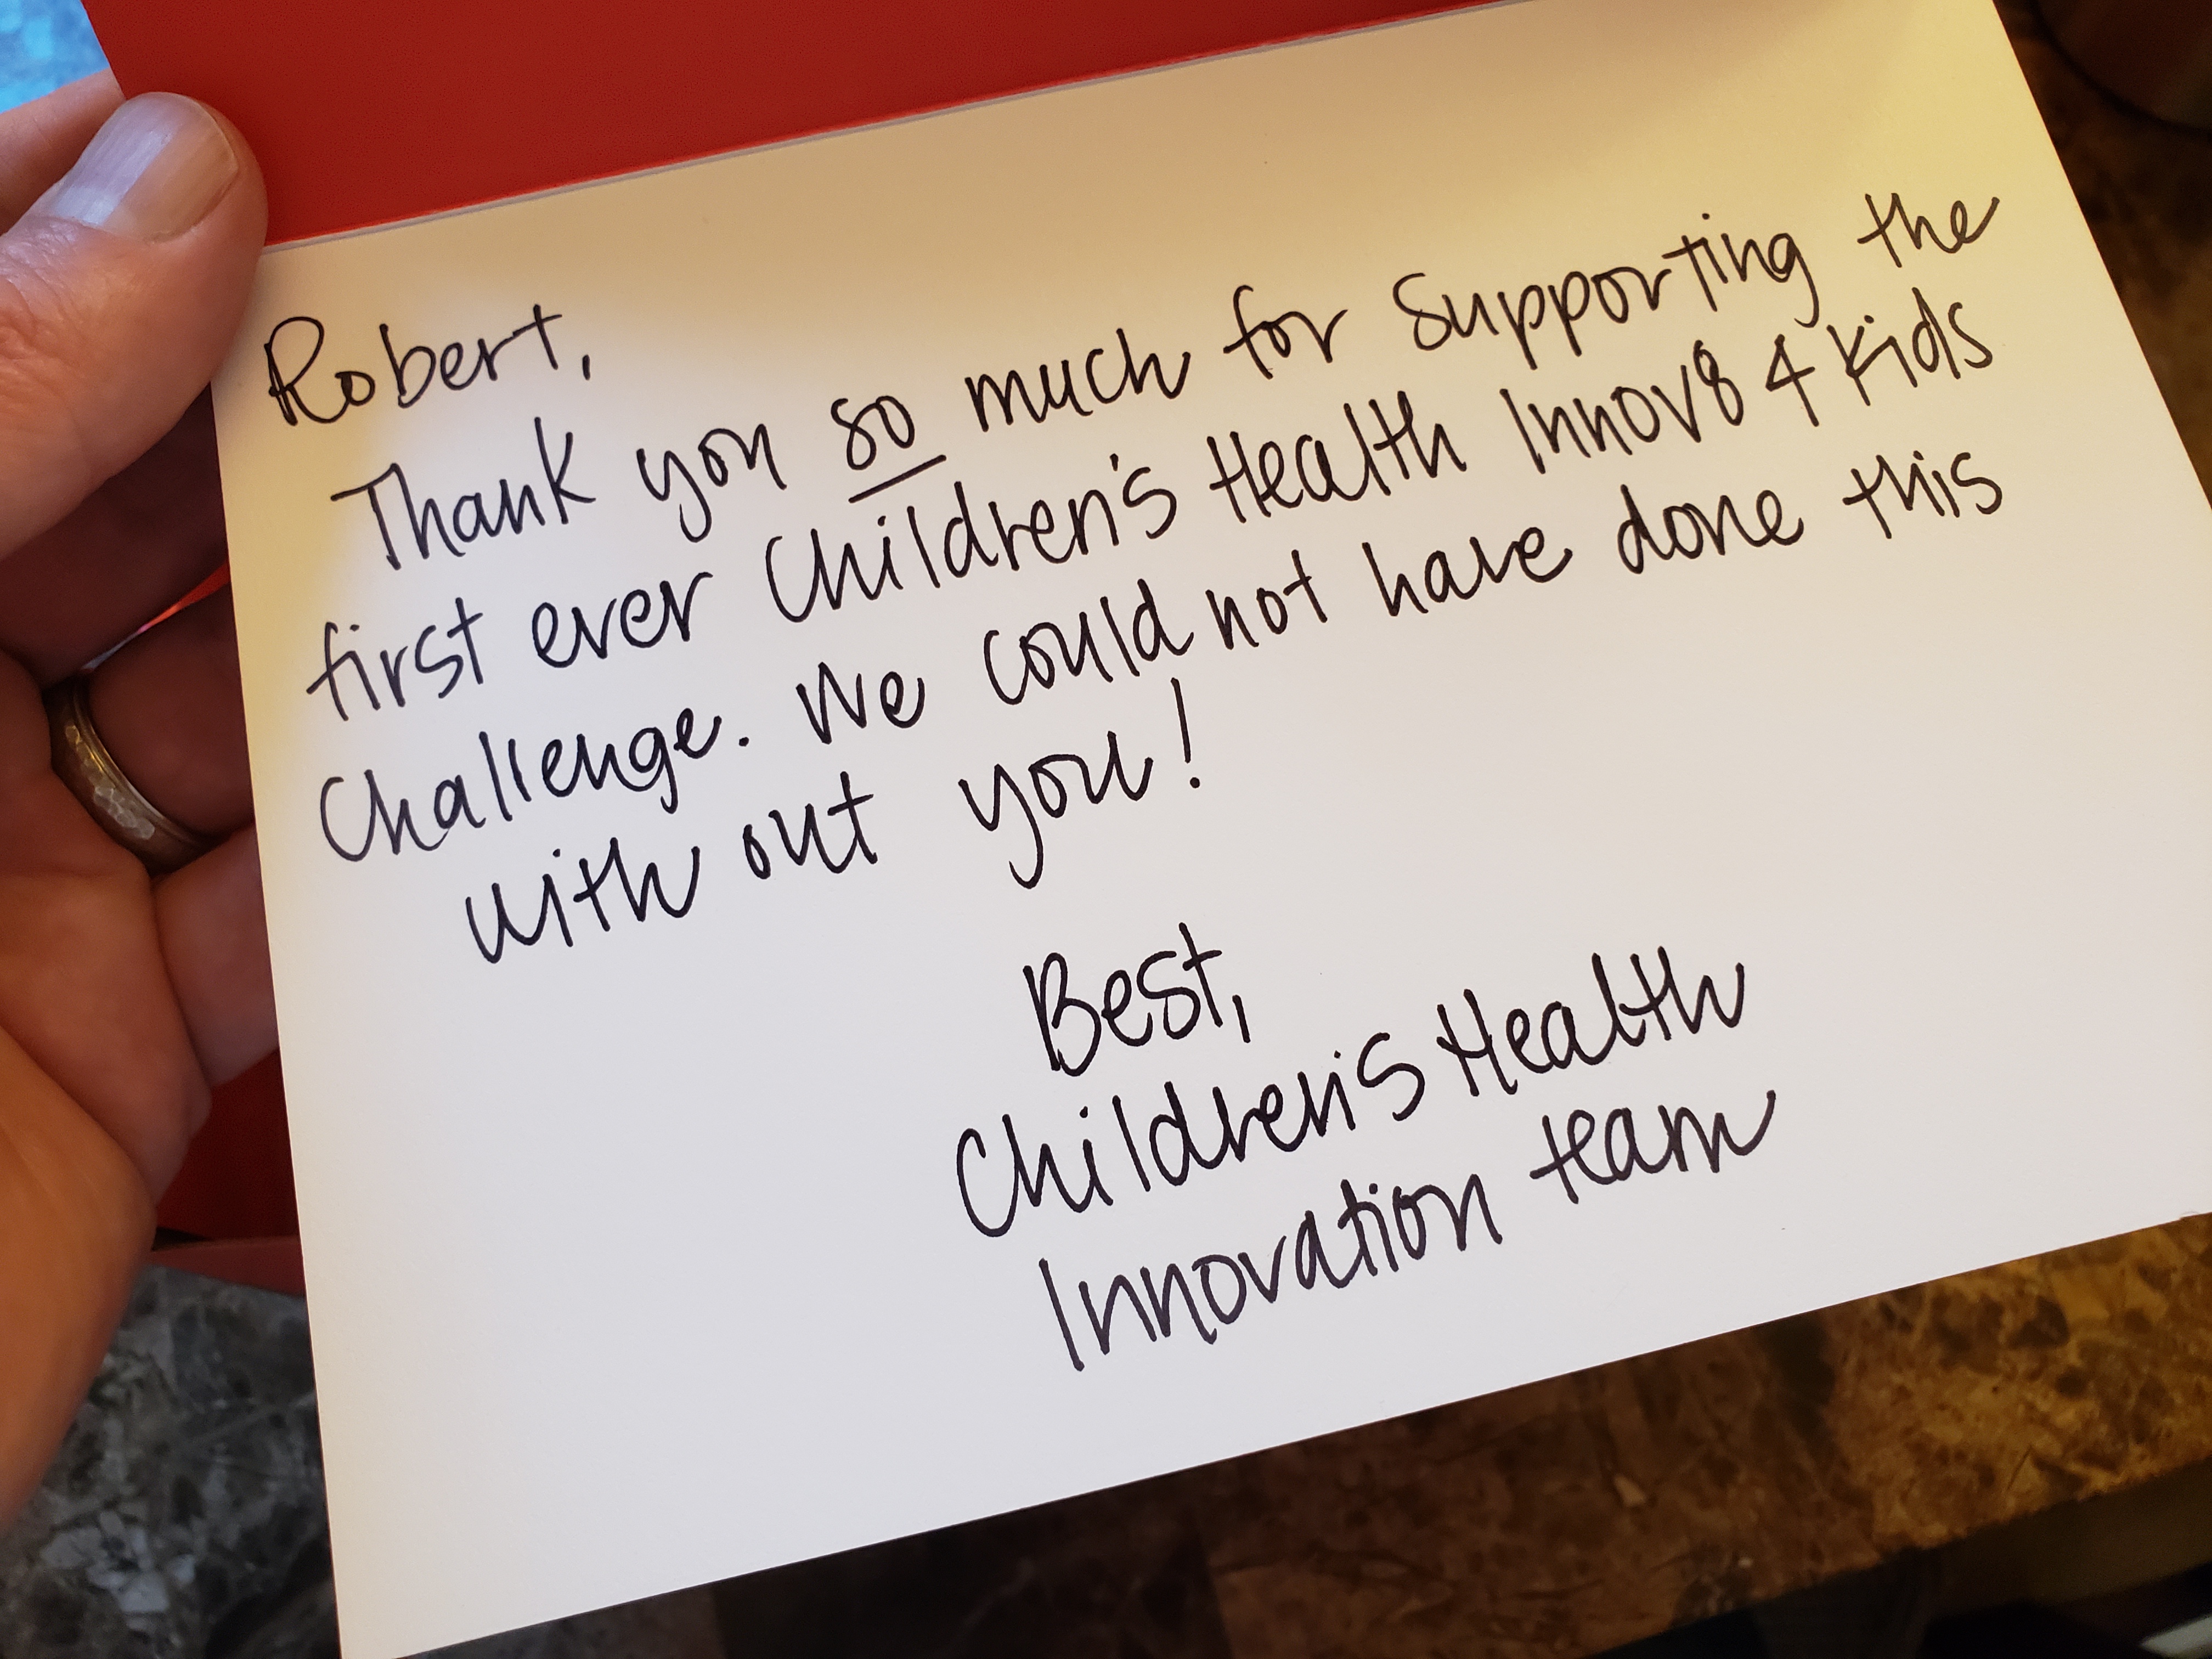 Robert,
Thank you so much for supporting the
first ever Children's Health Innov8 4 Kids
Challenge. We could not have done this
with out you!
Best,
Children's Health
Innovation team